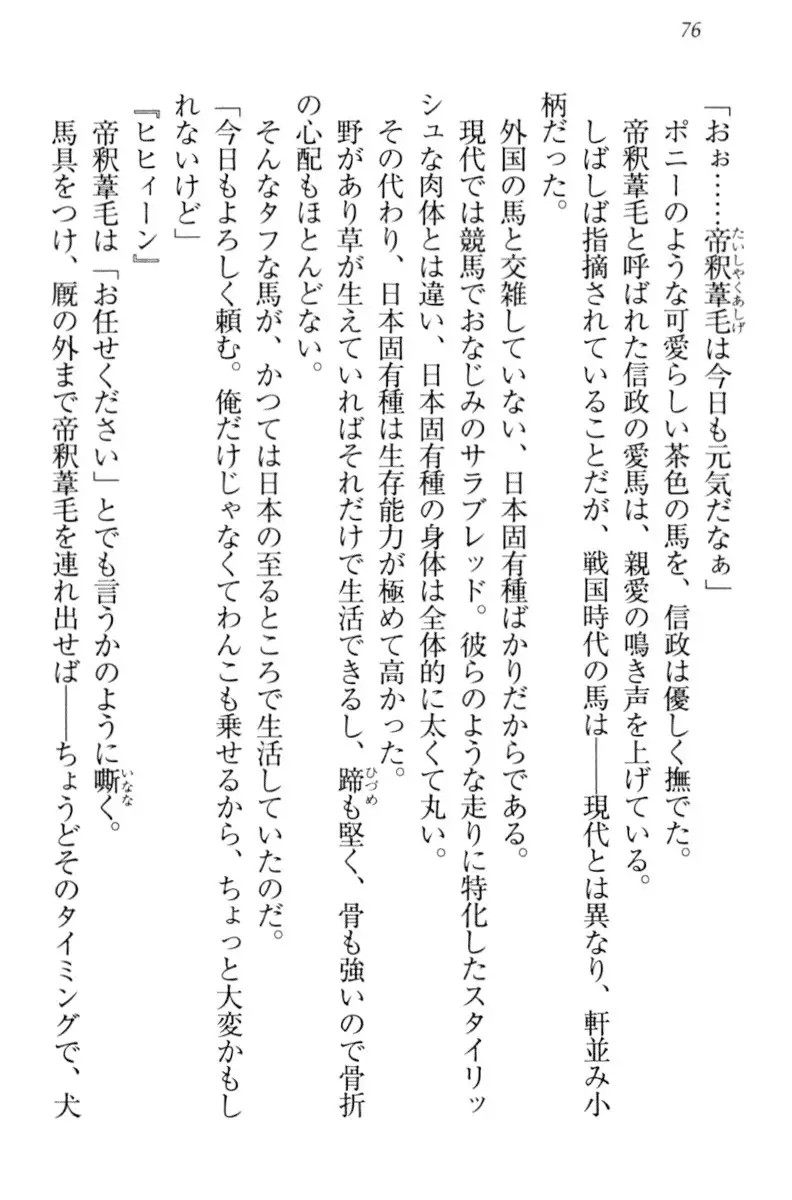 76
「おぉ……帝釈葦毛は今日も元気だなぁ」
ポニーのような可愛らしい茶色の馬を、信政は優しく撫でた。
帝釈葦毛と呼ばれた信政の愛馬は、親愛の鳴き声を上げている。
しばしば指摘されていることだが、戦国時代の馬は――現代とは異なり、軒並み小
柄だった。
外国の馬と交雑していない、日本固有種ばかりだからである。
現代では競馬でおなじみのサラブレッド。彼らのような走りに特化したスタイリッ
シュな肉体とは違い、日本固有種の身体は全体的に太くて丸い。
その代わり、日本固有種は生存能力が極めて高かった。
野があり草が生えていればそれだけで生活できるし、蹄も堅く、骨も強いので骨折
の心配もほとんどない。
そんなタフな馬が、かつては日本の至るところで生活していたのだ。
「今日もよろしく頼む。俺だけじゃなくてわんこも乗せるから、ちょっと大変かもし
れないけど」
『ヒヒィーン』
帝釈葦毛は「お任せください」とでも言うかのように嘶く。
馬具をつけ、厩の外まで帝釈葦毛を連れ出せば――ちょうどそのタイミングで、犬